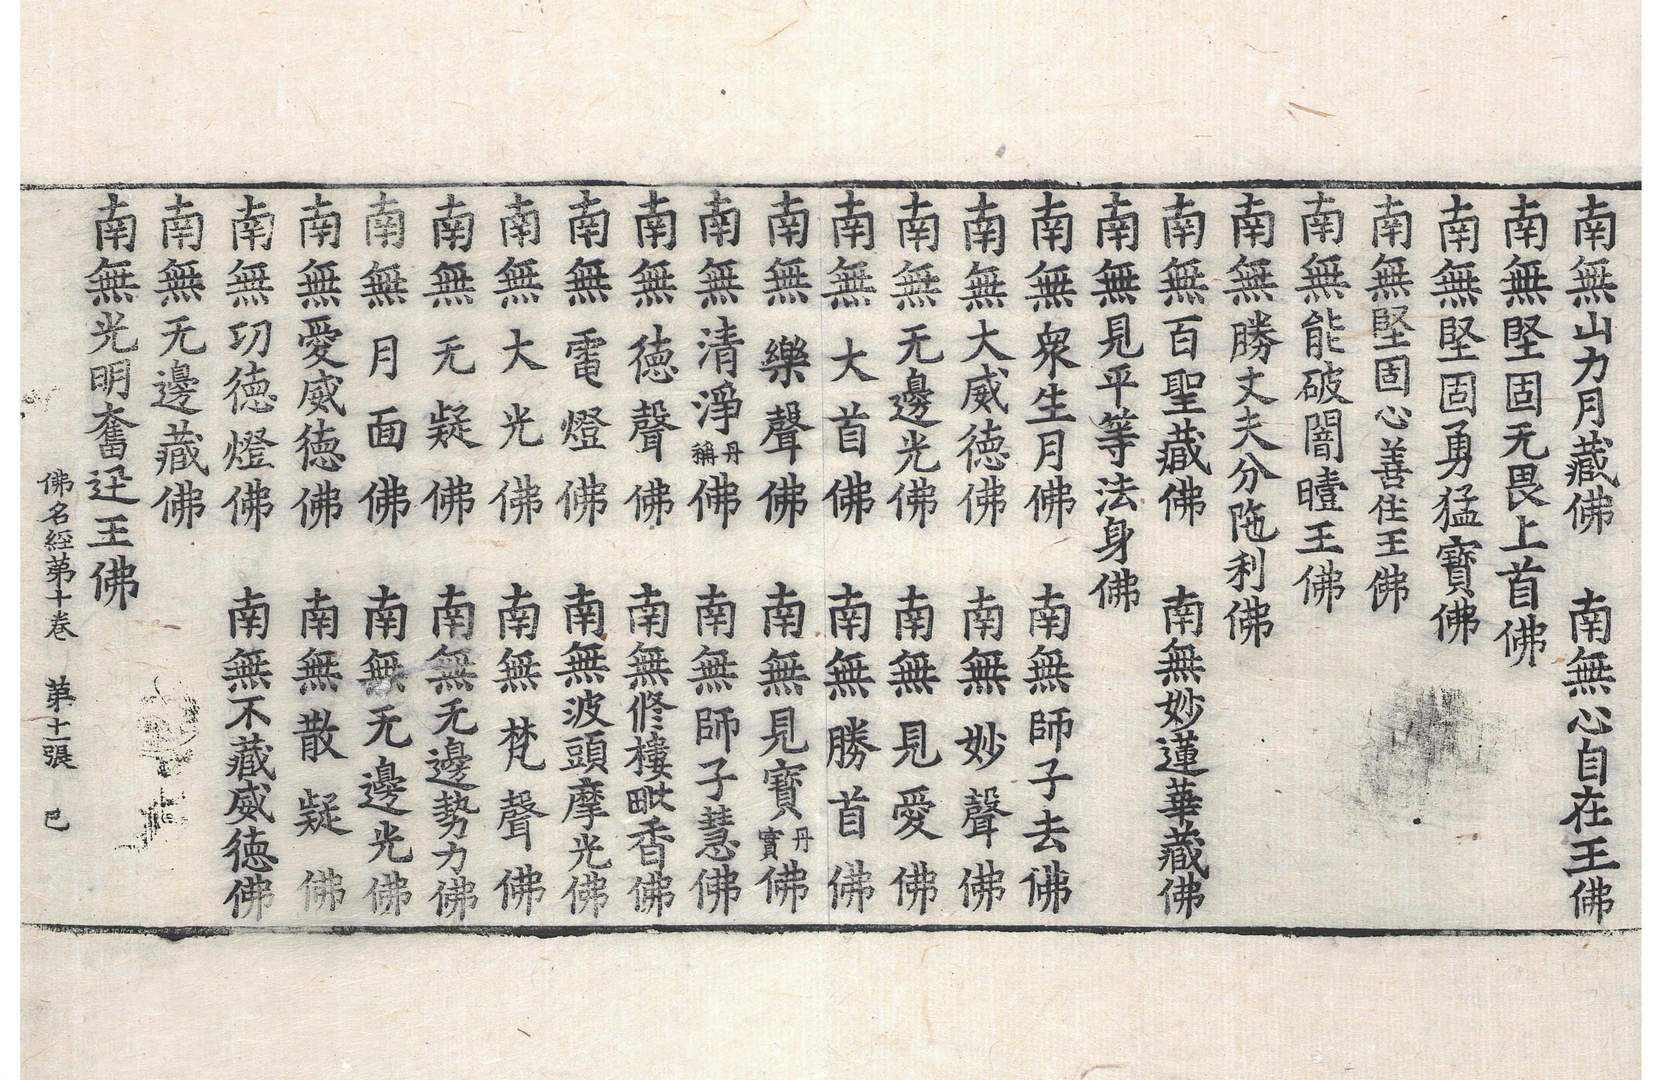 南無山力月藏佛　南無心自在王佛
南無堅固无畏上首佛
南無堅固勇猛寶佛
南無堅固心善住王佛
南無能破闇曀王佛
南無勝丈夫分陁利佛
南無百聖藏佛　南無妙蓮華藏佛
南無見平等法身佛
南無衆生月佛　南無師子去佛
南無大威德佛　南無妙聲佛
南無无邊光佛　南無見愛佛
南無大首佛　南無勝首佛
南無樂聲佛　南無見寶丹實佛
南無清淨丹稱佛　南無師子慧佛
南無德聲佛　南無修樓毗香佛
南無電燈佛　南無波頭摩光佛
南無大光佛　南無梵聲佛
南無无疑佛　南無无邊勢力佛
南無月面佛　南無无邊光佛
南無愛威德佛　南無散疑佛
南無功德燈佛　南無不藏威德佛
南無无邊藏佛
南無光明奮迅王佛
佛名經第十卷　第十一張　巳